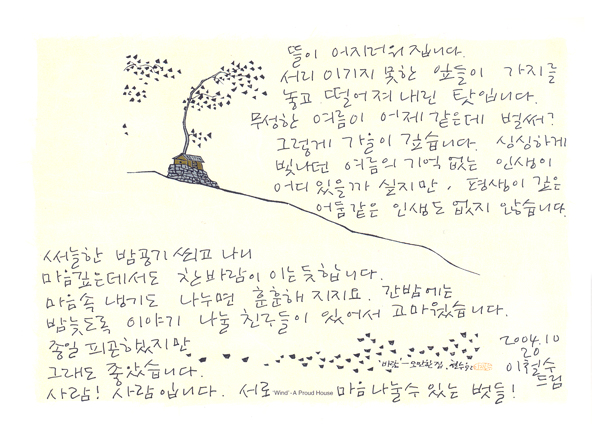 뜰이 어지러워집니다.
서리 이기지 못한 잎들이 가지를
놓고 떨어져 내린 탓입니다.
무성한 여름이 어제 같은데 벌써?
그렇게 가을이 깊습니다. 싱싱하게
빛나던 여름의 기억 없는 인생이
어디 있을까 싶지만, 평생이 깊은
어둠같은 인생도 없지 않습니다.
써늘한 밤공기 쐬고 나니
마음깊은데서도 찬바람이 이는듯합니다.
마음속 냉기도 나누면 훈훈해 지지요. 간밤에는
밤늦도록 이야기 나눌 친구들이 있어서 고마웠습니다.
종일 피곤했지만
그래도 좋았습니다.
사람! 사람입니다. 서로 마음나눌수있는 벗들!
'바람'-오만한집. 철수
'Wind'-A Proud House
2004.10
20
이철수
드림